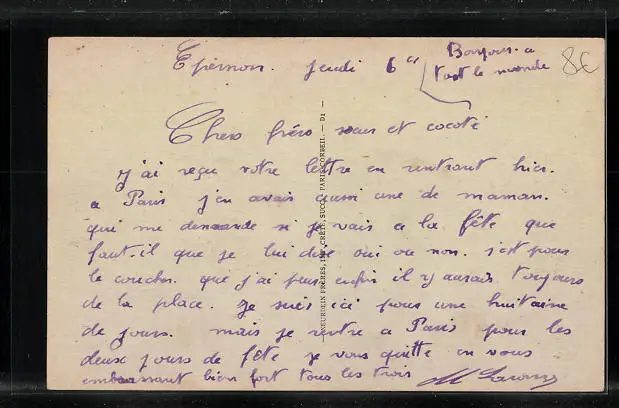 Epernon. jeudi 6h
Bonjour. a
tout le monde
8€
Chers frère sœur et cocoté
j'ai reçu votre lettre en rentrant hier.
a Paris j'en avais aussi une de maman.
qui me demande si je vais a la fête que
faut.il que je lui dise oui ou non. c'est pour
le coucher. que j'ai peur enfin il y aurais toujours
de la place. je suis ici pour une huitaine
de jours. mais je rentre a Paris pour les
deux jours de fête je vous quitte en vous
embrassant bien fort tous les trois
NEURDEIN FRÈRES, CRÉTÉ, SUCC. PARIS-CORBEIL. — D1 —